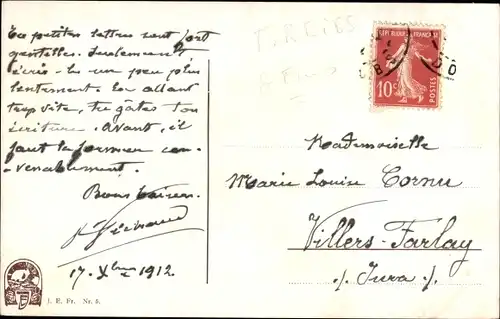 Tes petites lettres sont fort
gentilles. Seulement
écris-les un peu plus
lentement. En allant
trop vite, tu gâtes ton
écriture. Avant, il
faut la former con-
venablement.
Bons baisers.
17. Xbre 1912.
J. E. Fr. Nr. 5.
REPUBLIQUE FRANÇAISE
10c
POSTES
Mademoiselle
Marie Louise Cornu
Villers-Farlay
./. Jura ./.